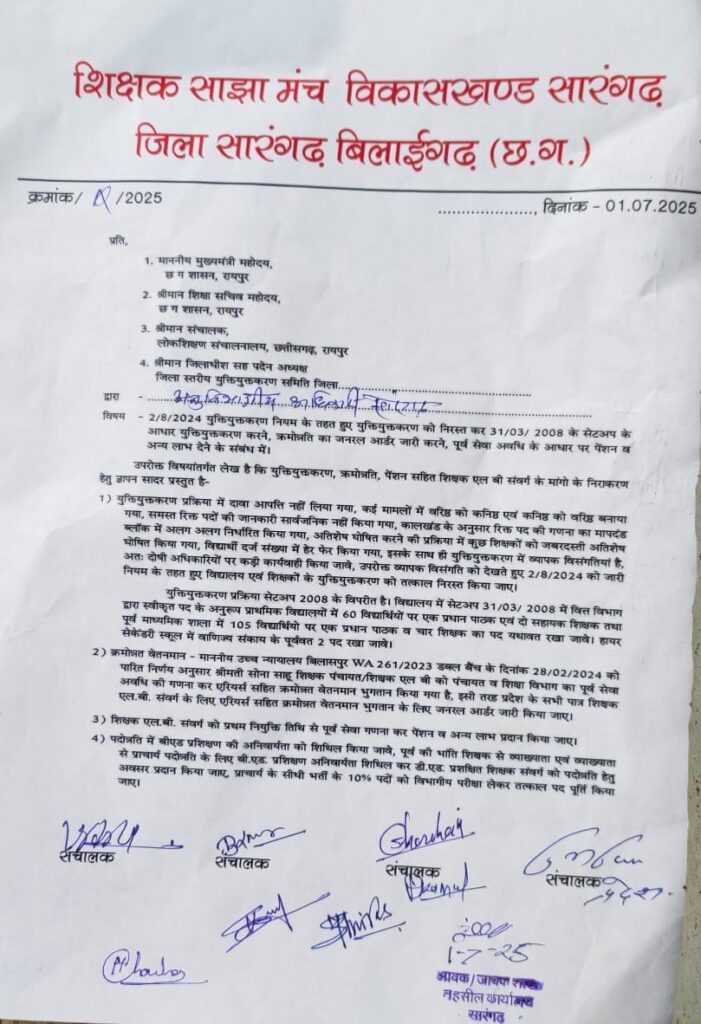 शिक्षक साझा मंच विकासखण्ड सारंगढ़
जिला सारंगढ़ बिलाईगढ़ (छ.ग.)
क्रमांक/ /2025
...................., दिनांक - 01.07.2025
प्रति,
1. माननीय मुख्यमंत्री महोदय,
छ ग शासन, रायपुर
2. श्रीमान शिक्षा सचिव महोदय,
छ ग शासन, रायपुर
3. श्रीमान संचालक,
लोकशिक्षण संचालनालय, छत्तीसगढ़, रायपुर
4. श्रीमान जिलाधीश सह पदेन अध्यक्ष
जिला स्तरीय युक्तियुक्तकरण समिति जिला........................................
द्वारा - अनुविभागीय अधिकारी
विषय - 2/8/2024 युक्तियुक्तकरण नियम के तहत हुए युक्तियुक्तकरण को निरस्त कर 31/03/ 2008 के सेटअप के
आधार युक्तियुक्तकरण करने, क्रमोन्नति का जनरल आर्डर जारी करने, पूर्व सेवा अवधि के आधार पर पेंशन व
अन्य लाभ देने के संबंध में।
उपरोक्त विषयांतर्गत लेख है कि युक्तियुक्तकरण, क्रमोन्नति, पेंशन सहित शिक्षक एल बी संवर्ग के मांगो के निराकरण
हेतु ज्ञापन सादर प्रस्तुत है-
1) युक्तियुक्तकरण प्रक्रिया में दावा आपत्ति नहीं लिया गया, कई मामलों में वरिष्ठ को कनिष्ठ एवं कनिष्ठ को वरिष्ठ बनाया
गया, समस्त रिक्त पदों की जानकारी सार्वजनिक नहीं किया गया, कालखंड के अनुसार रिक्त पद की गणना का मापदंड
ब्लॉक में अलग अलग निर्धारित किया गया, अतिशेष घोषित करने की प्रक्रिया में कुछ शिक्षकों को जबरदस्ती अतिशेष
घोषित किया गया, विद्यार्थी दर्ज संख्या में हेर फेर किया गया, इसके साथ ही युक्तियुक्तकरण में व्यापक विसंगतियां है,
अतः दोषी अधिकारियों पर कड़ी कार्यवाही किया जावे, उपरोक्त व्यापक विसंगति को देखते हुए 2/8/2024 को जारी
नियम के तहत हुए विद्यालय एवं शिक्षकों के युक्तियुक्तकरण को तत्काल निरस्त किया जाए।
युक्तियुक्तकरण प्रक्रिया सेटअप 2008 के विपरीत है। विद्यालय में सेटअप 31/03/ 2008 में वित्त विभाग
द्वारा स्वीकृत पद के अनुरूप प्राथमिक विद्यालयों में 60 विद्यार्थियों पर एक प्रधान पाठक एवं दो सहायक शिक्षक तथा
पूर्व माध्यमिक शाला में 105 विद्यार्थियो पर एक प्रधान पाठक व चार शिक्षक का पद यथावत रखा जावे। हायर
सेकेंडरी स्कूल में वाणिज्य संकाय के पूर्ववत 2 पद रखा जावे।
2) क्रमोन्नत वेतनमान - माननीय उच्च न्यायालय बिलासपुर WA 261/2023 डबल बैंच के दिनांक 28/02/2024 को
पारित निर्णय अनुसार श्रीमती सोना साहू शिक्षक पंचायत/शिक्षक एल बी को पंचायत व शिक्षा विभाग का पूर्व सेवा
अवधि की गणना कर एरियर्स सहित क्रमोन्नत वेतनमान भुगतान किया गया है, इसी तरह प्रदेश के सभी पात्र शिक्षक
एल.बी. संवर्ग के लिए एरियर्स सहित क्रमोन्नत वेतनमान भुगतान के लिए जनरल आर्डर जारी किया जाए।
3) शिक्षक एल.बी. संवर्ग को प्रथम नियुक्ति तिथि से पूर्व सेवा गणना कर पेंशन व अन्य लाभ प्रदान किया जाए।
4) पदोन्नति में बीएड प्रशिक्षण की अनिवार्यता को शिथिल किया जावे, पूर्व की भांति शिक्षक से व्याख्याता एवं व्याख्याता
से प्राचार्य पदोन्नति के लिए बी.एड. प्रशिक्षण अनिवार्यता शिथिल कर डी.एड. प्रशिक्षित शिक्षक संवर्ग को पदोन्नति हेतु
अवसर प्रदान किया जाए, प्राचार्य के सीधी भर्ती के 10% पदों को विभागीय परीक्षा लेकर तत्काल पद पूर्ति किया
जाए।
संचालक
संचालक
संचालक
संचालक
1-7-25
आवक/जावक शाखा
तहसील कार्यालय
सारंगढ़